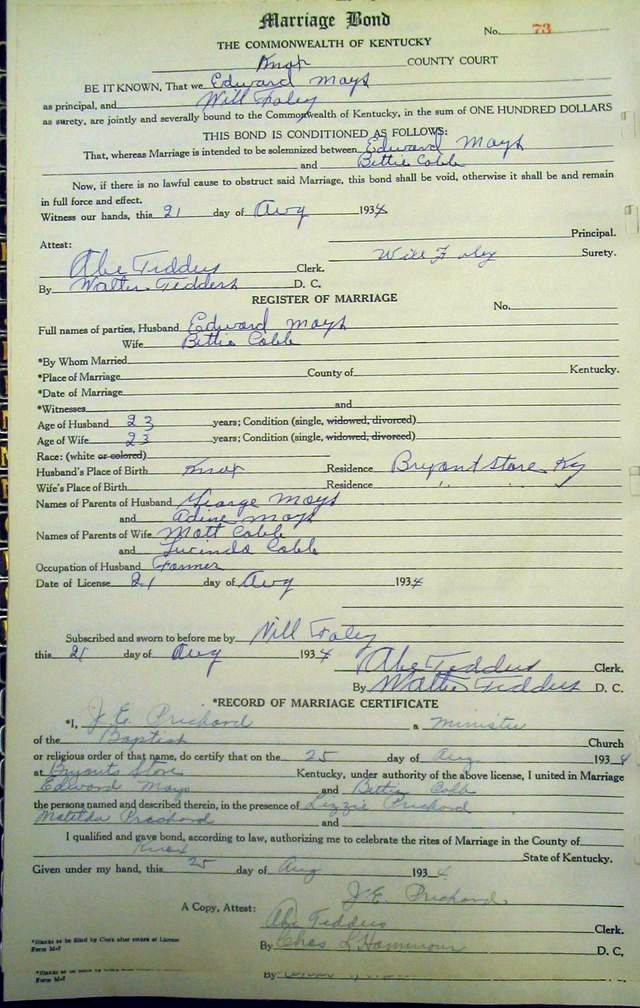 Marriage Bond
No. 73
THE COMMONWEALTH OF KENTUCKY
Knox COUNTY COURT
BE IT KNOWN, That we Edward Mays
as principal, and Will Foley
as surety, are jointly and severally bound to the Commonwealth of Kentucky, in the sum of ONE HUNDRED DOLLARS
THIS BOND IS CONDITIONED AS FOLLOWS:
That, whereas Marriage is intended to be solemnized between Edward Mays
and Bettie Cobb
Now, if there is no lawful cause to obstruct said Marriage, this bond shall be void, otherwise it shall be and remain
in full force and effect.
Witness our hands, this 21 day of Aug 1934
Principal.
Attest: Will Foley Surety.
Abe Tedders Clerk.
By Walter Tedders D. C.
REGISTER OF MARRIAGE
No.
Full names of parties, Husband Edward Mays
Wife Bettie Cobb
*By Whom Married
*Place of Marriage County of Kentucky.
*Date of Marriage
*Witnesses and
Age of Husband 23 years; Condition (single, widowed, divorced)
Age of Wife 23 years; Condition (single, widowed, divorced)
Race: (white or colored)
Husband's Place of Birth Knox Residence Bryant Store Ky
Wife's Place of Birth Residence " "
Names of Parents of Husband George Mays
and Mays
Names of Parents of Wife Matt Cobb
and Lucinda Cobb
Occupation of Husband Farmer
Date of License 21 day of Aug 1934
Subscribed and sworn to before me by Will Foley
this 21 day of Aug 1934
Abe Tedders Clerk.
By Walter Tedders D. C.
*RECORD OF MARRIAGE CERTIFICATE
*I, J.E. Prichard a Minister
of the Baptist Church
or religious order of that name, do certify that on the 25 day of Aug 1934
at Bryants Store Kentucky, under authority of the above license, I united in Marriage
Edward Mays and Bettie Cobb
the persons named and described therein, in the presence of Lizzie Prichard
Matilda Prichard and
I qualified and gave bond, according to law, authorizing me to celebrate the rites of Marriage in the County of
Knox State of Kentucky.
Given under my hand, this 25 day of Aug 1934
J.E. Prichard
A Copy, Attest: Abe Tedders Clerk.
*Blanks to be filed by Clerk after return of License
Form M-7
By Chas L Hammons D. C.
Form M-7
By